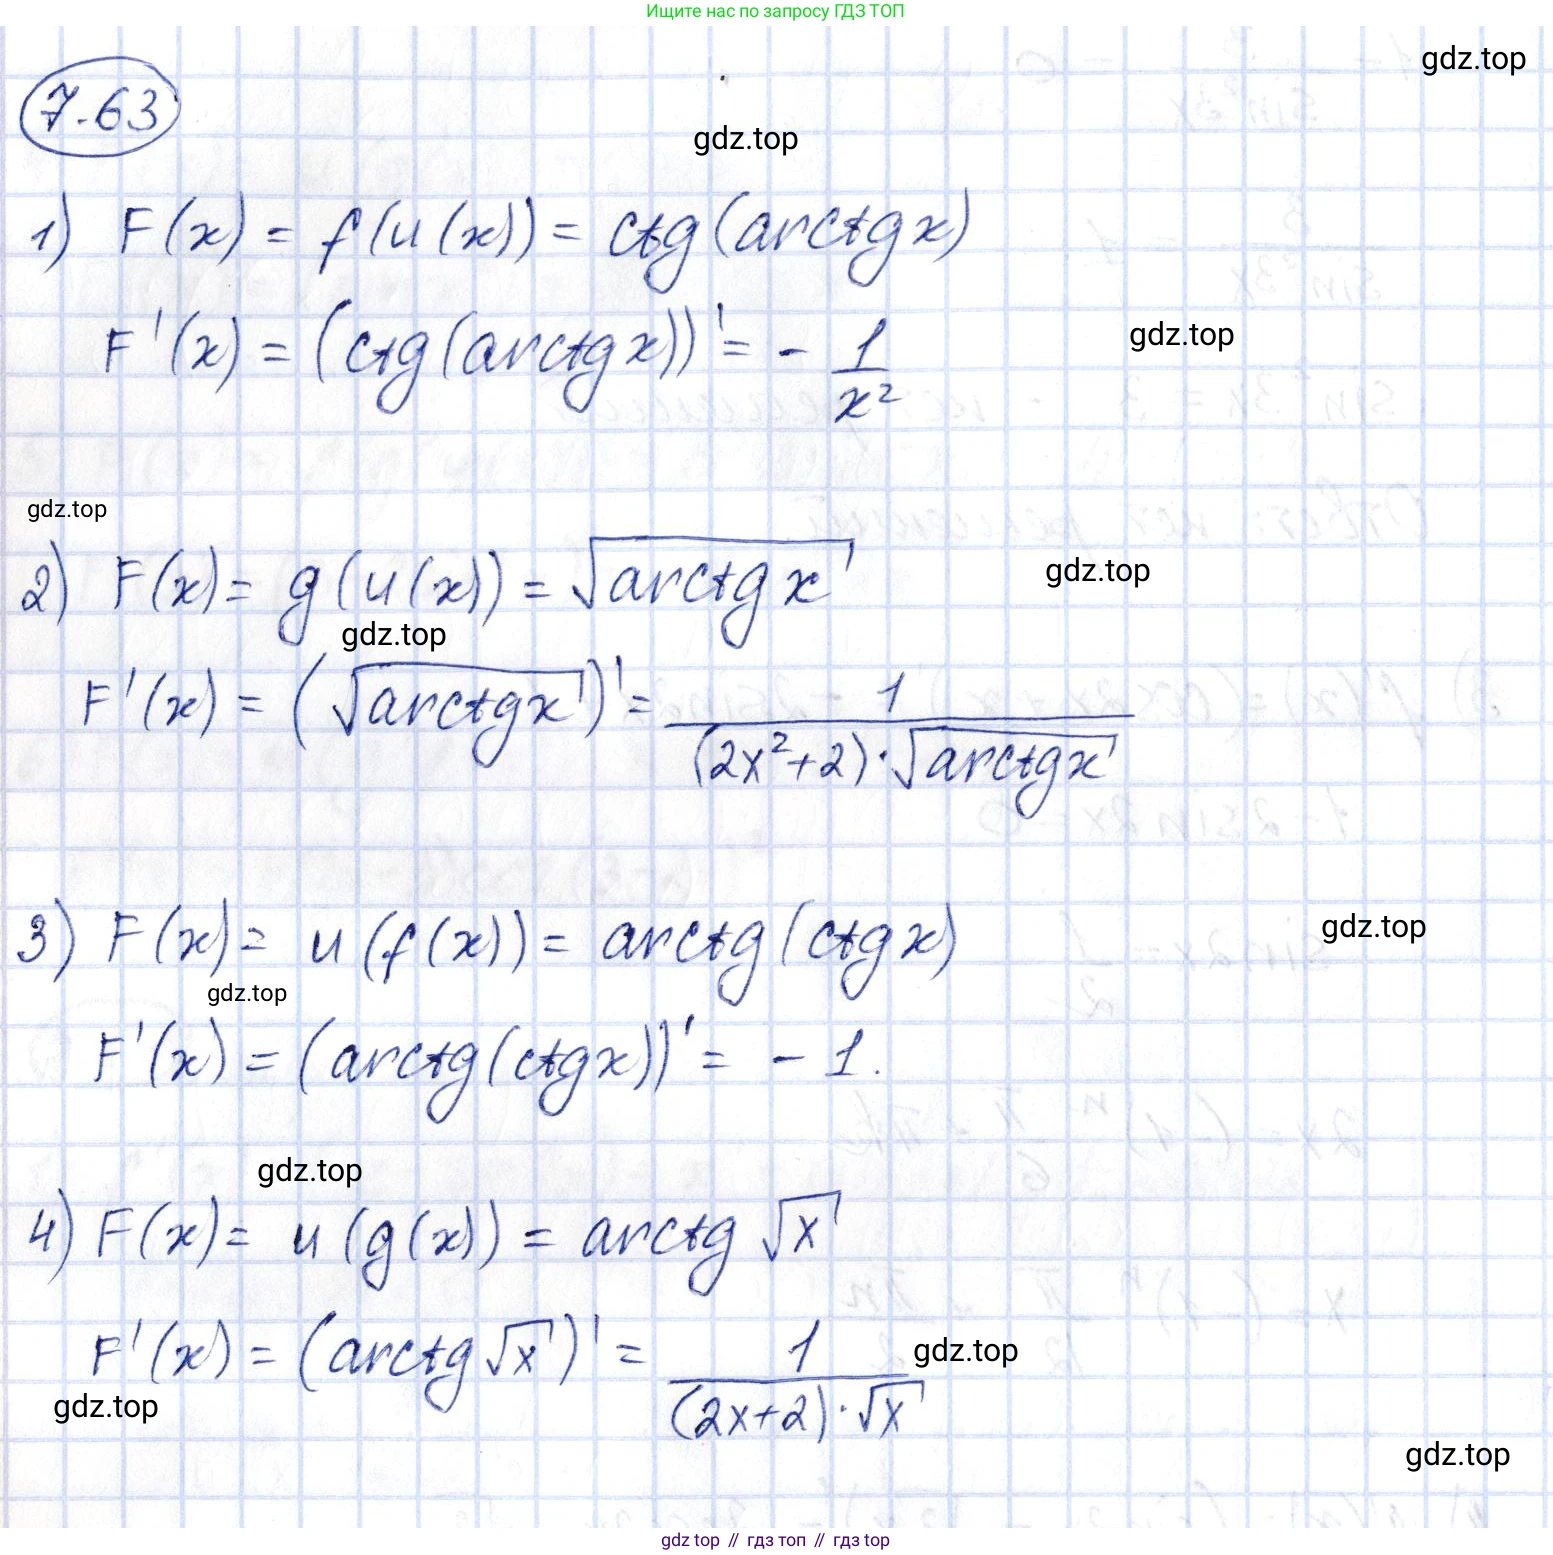 Ищите нас по запросу ГДЗ ТОП
gdz.top
7.63
gdz.top
1) F(x) = f(u(x)) = ctg(arcctg x)
F'(x) = (ctg(arctg x))' = - 1/x²
gdz.top
gdz.top
2) F(x) = g(u(x)) = √arctg x
gdz.top
gdz.top
F'(x) = (√arctg x)' = 1/((2x²+2)·√arctg x)
3) F(x) = u(f(x)) = arctg(ctg x)
gdz.top
gdz.top
F'(x) = (arctg(ctg x))' = - 1.
gdz.top
4) F(x) = u(g(x)) = arctg √x
F'(x) = (arctg √x)' = 1/((2x+2)·√x)
gdz.top
gdz.top
gdz.top
gdz top // гдз топ // гдз top